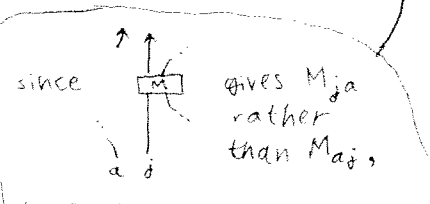 since M gives Mja
rather
than Maj,
a j